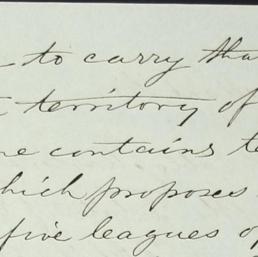 to carry tha
territory of
ne contains te
which proposes
five leagues of